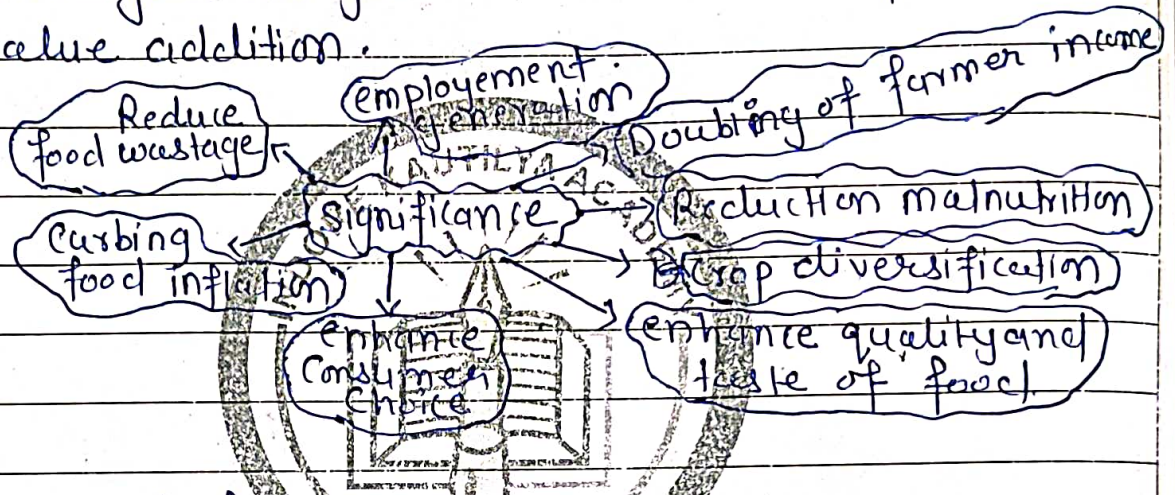 alue addition.
employement.
generation
Doubling of farmer income
Reduce
food wastage
Significance
Reduction malnutrition
Curbing
food inflation
Crop diversification
enhance
Consumer
Choice
enhance quality and
taste of food